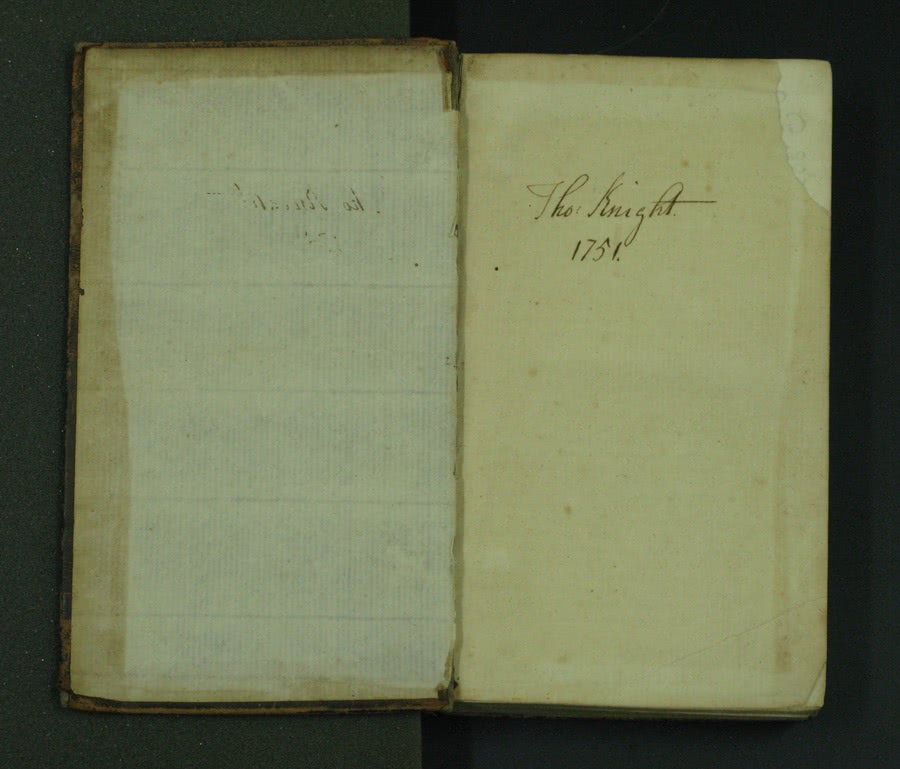 Tho: Knight.
1751.